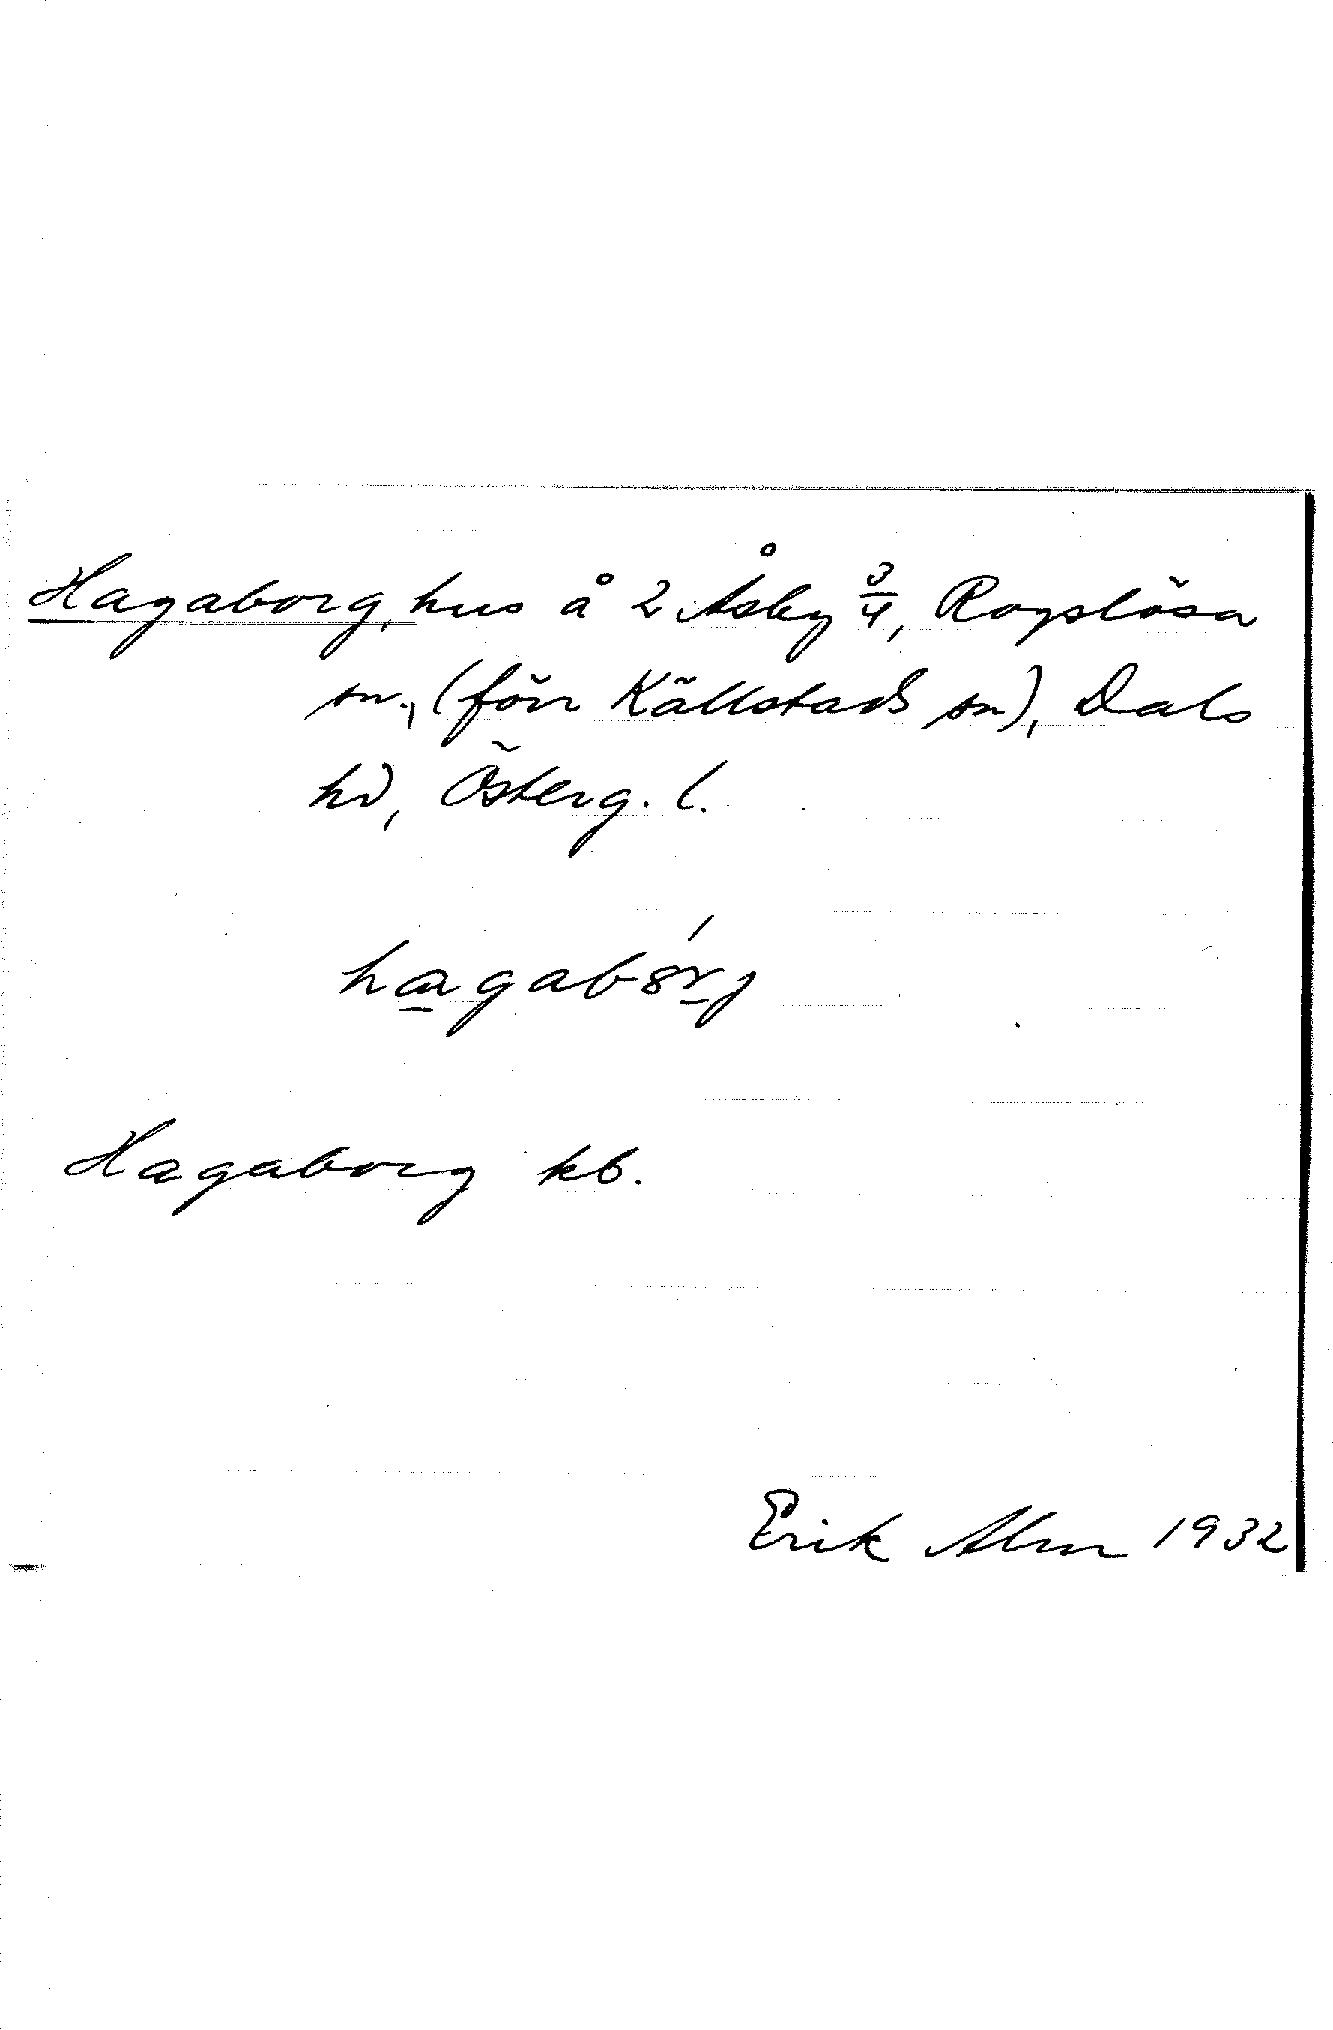 Hagaborg, hus å 2 Åsby 3/4, Rogslösa
sn., (förr Källstads sn), Dals
hd, Österg. l.
hagabórj
Hagaborg kb.
Erik Alm 1932